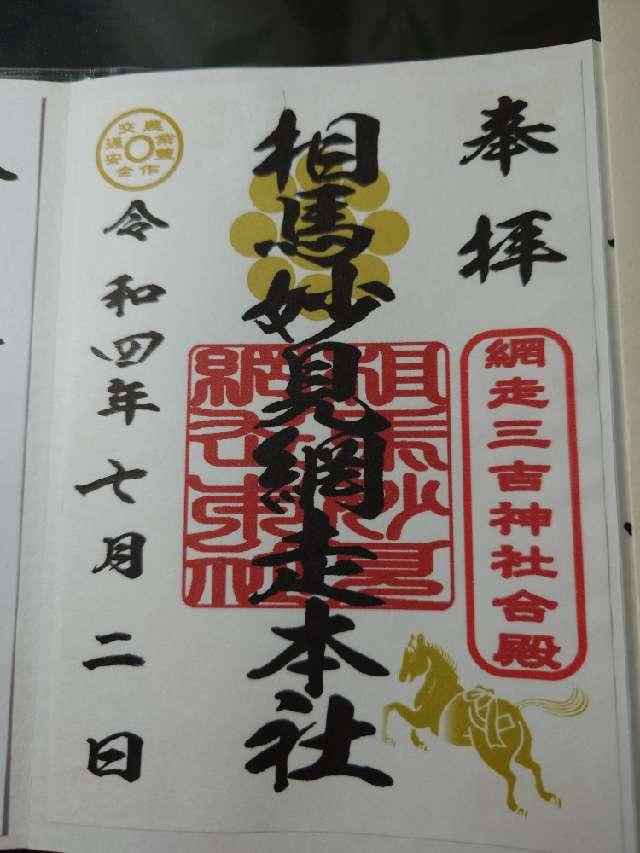 奉拝
網走三吉神社合殿
相馬妙見網走本社
相馬妙見
網走本社
農業豊作
交通安全
令和四年七月二日